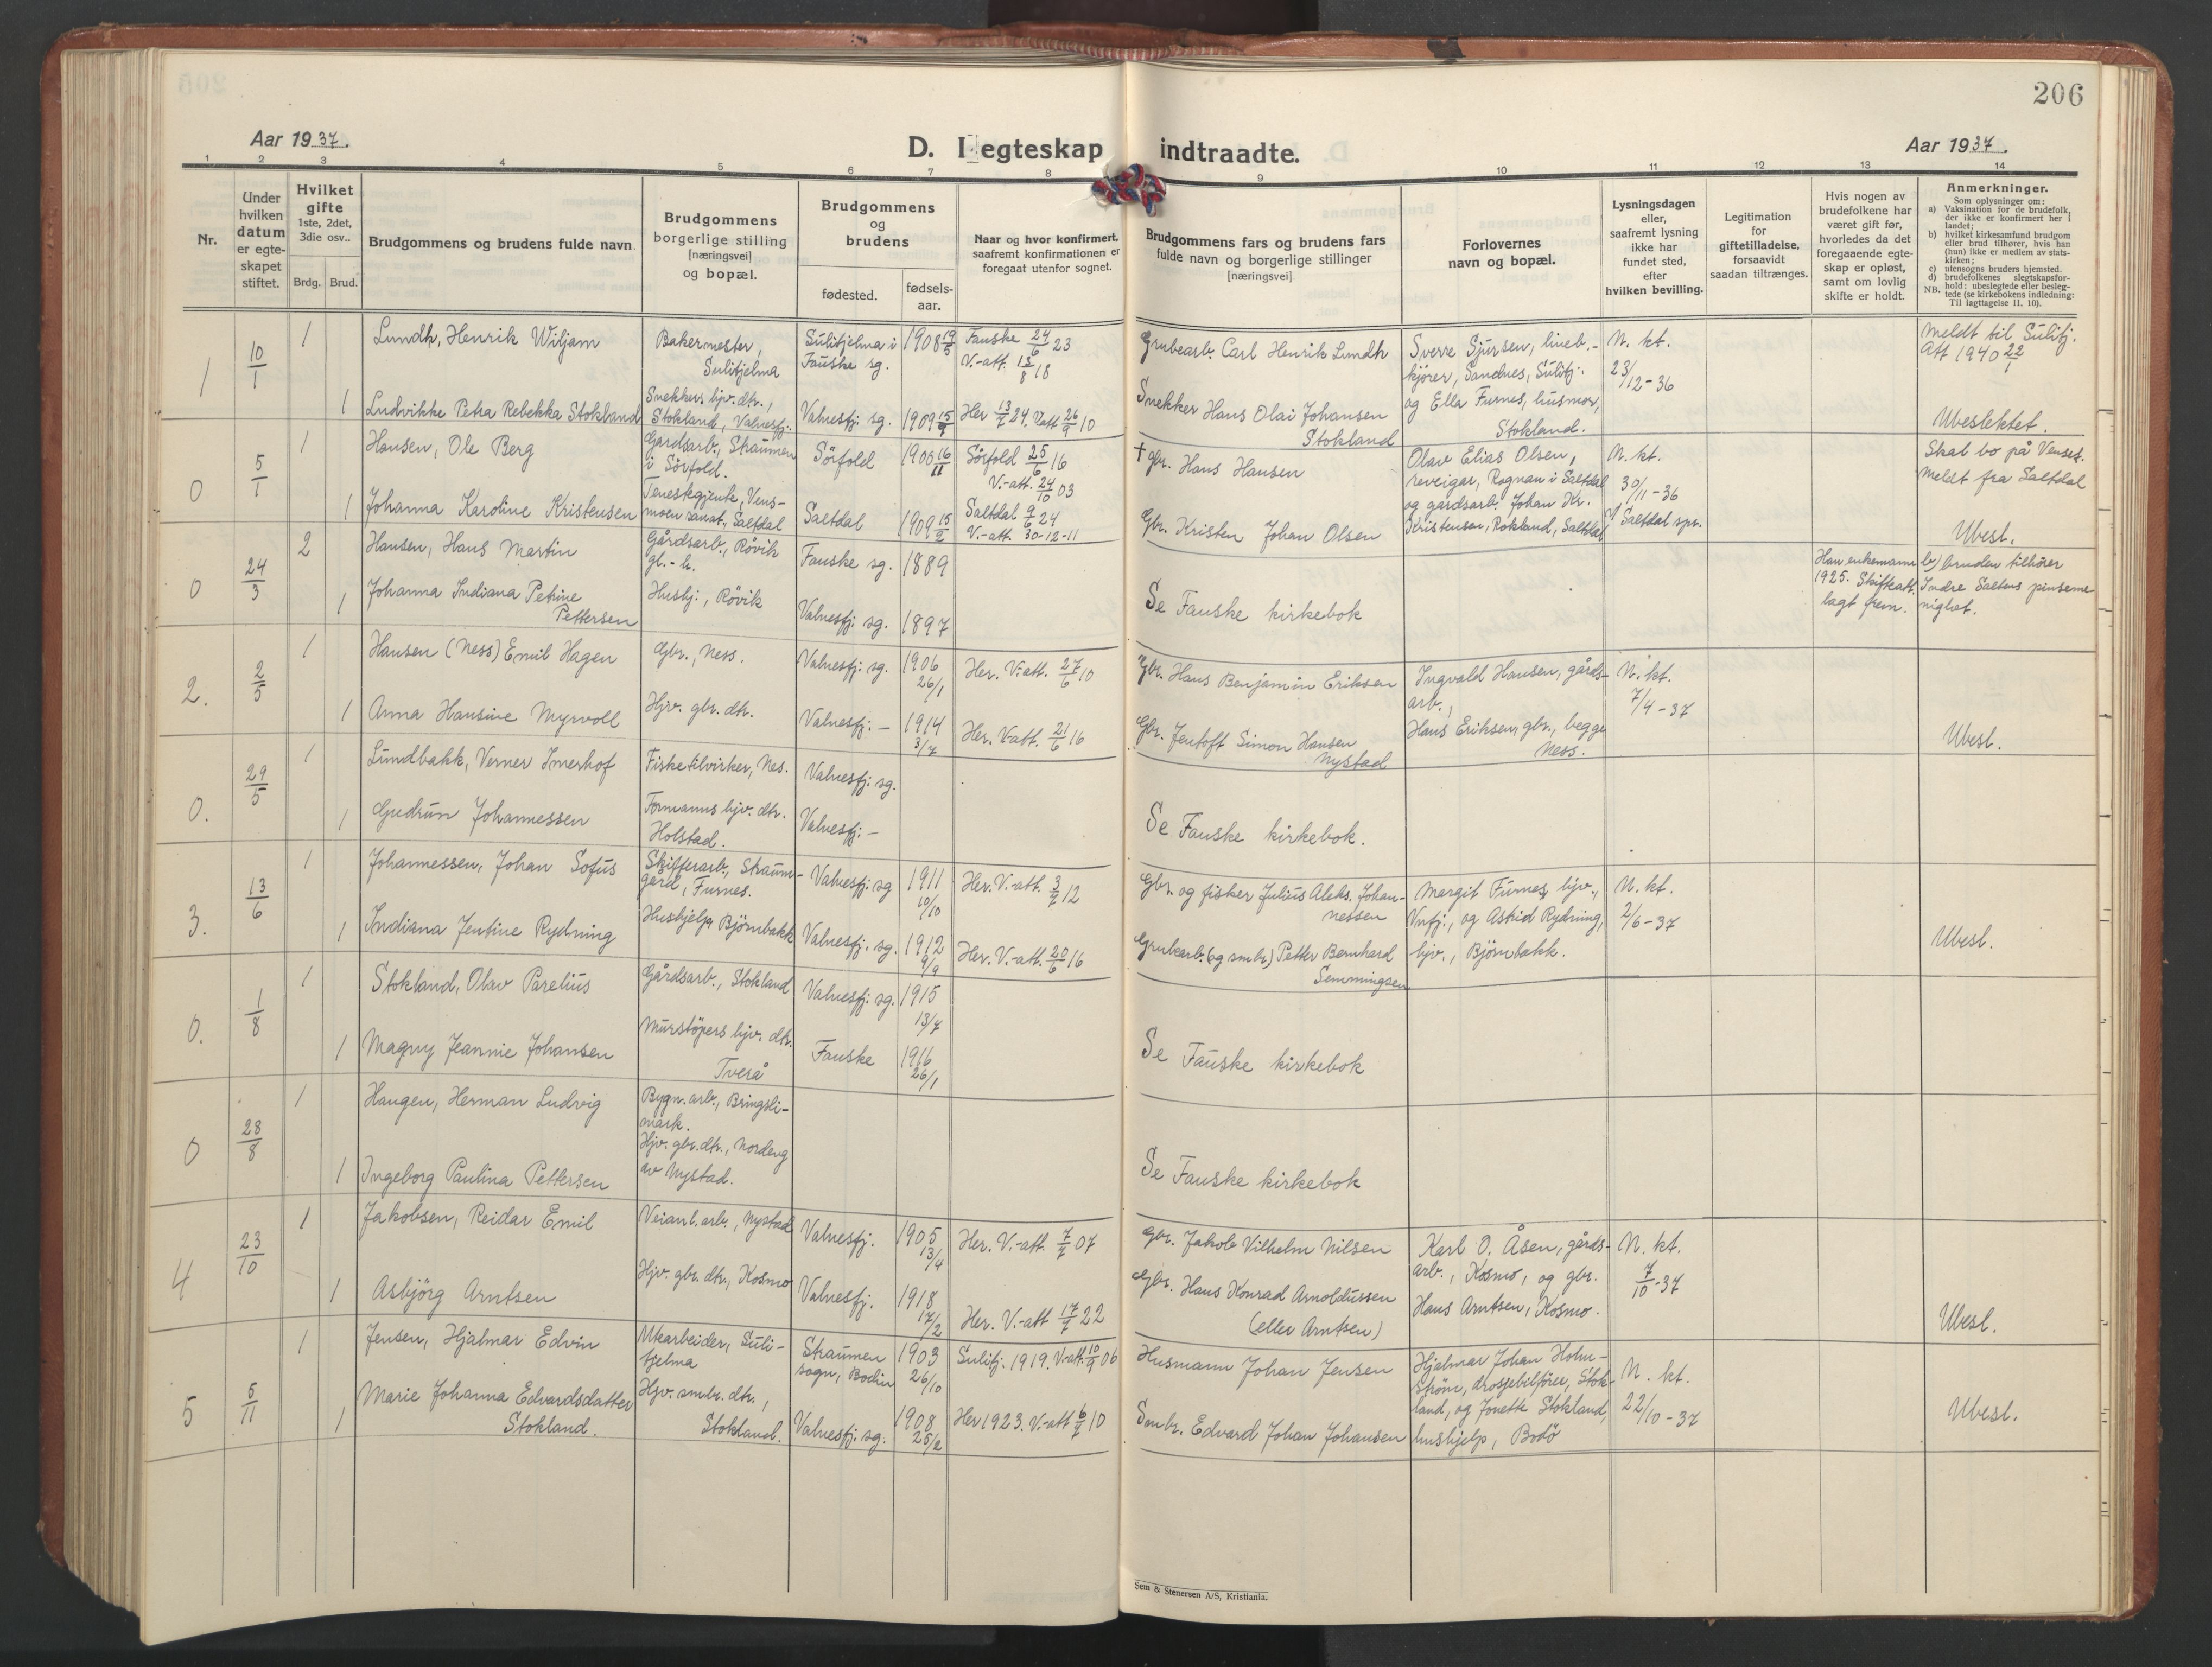 206
Aar 1937.
D. I egteskap indtraadte.
Aar 1937.
1 2 3 4 5 6 7 8 9 10 11 12 13 14
Nr.
Under hvilken datum er egteskapet stiftet.
Hvilket gifte 1ste, 2det, 3die osv..
Brdg. Brud.
Brudgommens og brudens fulde navn
Brudgommens borgerlige stilling [næringsvei] og bopæl.
Brudgommens og brudens
fødested.
fødselsaar.
Naar og hvor konfirmert, saafremt konfirmationen er foregaat utenfor sognet.
Brudgommens fars og brudens fars fulde navn og borgerlige stillinger [næringsvei]
Forlovernes navn og bopæl.
Lysningsdagen eller, saafremt lysning ikke har fundet sted, efter hvilken bevilling.
Legitimation for giftetilladelse, forsaavidt saadan tiltrænges.
Hvis nogen av brudefolkene har været gift før, hvorledes da det foregaaende egteskap er opløst, samt om lovlig skifte er holdt.
Anmerkninger.
Som oplysninger om:
a) Vaksination for de brudefolk, der ikke er konfirmert her i landet;
b) hvilket kirkesamfund brudgom eller brud tilhører, hvis han (hun) ikke er medlem av statskirken;
c) utensogns bruders hjemsted.
d) brudefolkenes slegtskapsforhold: ubeslegtede eller beslegtede (se kirkebokens indledning: NB. Til iagttagelse II. 10).
1 10/1 1 Lundh, Henrik Wiljam Bakermester, Sulitjelma Sulitjelma i Fauske sg. 1908 19/5 Fauske 24/6 23 V.-att. 13/8 18 Grubearb. Carl Henrik Lundh Sverre Sjursen, lineb.-kjører, Sandnes, Sulitj. og Ella Furnes, husmor, Stokland. N. kt. 23/12-36 Meldt til Sulitj. Att 1940 22/1
1 Ludvikke Petra Rebekka Stokland Snekkers hjv. dtr., Stokland, Valnesfj. Valnesfj. sg. 1909 15/9 Her 13/7 24. V.att 26/9 10 Snekker Hans Olai Johansen Stokland Ubeslektet.
0 5/1 1 Hansen, Ole Berg Gårdsarb., Straumen i Sörfold. Sörfold 1900 16/11 Sörfold 25/6 16 V.-att. 24/10 03 † Gbr. Hans Hansen Olav Elias Olsen, reveigar, Rognan i Saltdal og gårdsarb. Johan Kr. Kristensen, Rokland, Saltdal N. kt. 30/11-36 i Saltdal spr. Skal bo på Venset. Meldt fra Saltdal
1 Johanna Karoline Kristensen Teneskgjente, Vensmoen sanat., Saltdal Saltdal 1909 15/2 Saltdal 9/6 24 V.-att. 30-12-11 Gbr. Kristen Johan Olsen Ubesl.
0 24/3 2 Hansen, Hans Martin Gårdsarb., Røvik gl.-h. Fauske sg. 1889 Han enkemann 1925. Skifteatt. lagt frem. b) bruden tilhører Indre Saltens pinsemenighet.
1 Johanna Indiana Petrine Pettersen Hushj., Røvik Valnesfj. sg. 1897 Se Fauske kirkebok
2. 2/5 1 Hansen (Ness) Emil Hagen Gbr., Ness. Valnesfj. sg. 1906 26/1 Her. V.att. 27/6 10 Gbr. Hans Benjamin Eriksen Ingvald Hansen, gårdsarb., Hans Eriksen, gbr., begge Ness. N. kt. 7/4-37
1 Anna Hansine Myrvoll Hjv. gbr. dtr. Valnesfj. - 1914 3/7 Her. V-att. 21/6 16 Gbr. Jentoft Simon Hansen Nystad Ubesl.
0. 29/5 1 Lundbakk, Verner Imerhof Fisketilvirker, Nes. Valnesfj. sg.
1 Gudrun Johannessen Formanns hjv. dtr. Holstad. Valnesfj. - Se Fauske kirkebok.
3. 13/6 1 Johannessen, Johan Sofus Skifferarb., Straumgård, Furnes. Valnesfj. sg 1911 10/10 Her. V.-att. 3/7 12 Gbr. og fisker Julius Aleks. Johannessen Margit Furnes, hjv., Vnfj., og Astrid Rydning, hjv., Björnbakk. N. kt. 2/6-37
1 Indiana Jentine Rydning Hushjelp, Björnbakk Valnesfj. sg. 1912 9/9 Her. V.-att. 20/6 16 Grubearb. (og smbr) Petter Bernhard Semmingsen Ubesl.
0. 1/8 1 Stokland, Olav Parelius Gårdsarb., Stokland Valnesfj. sg. 1915 13/7
1 Magny Jeannie Johansen Murstöpers hjv. dtr. Tverå Fauske 1916 26/1 Se Fauske kirkebok
0 28/8 1 Haugen, Herman Ludvig Bygn. arb., Bringslimark.
1 Ingeborg Paulina Pettersen Hjv. gbr. dtr., Nordeng av Nystad. Se Fauske kirkebok
4 23/10 1 Jakobsen, Reidar Emil Veianl. arb., Nystad Valnesfj. 1905 13/4 Her. V.-att. 7/7 07 Gbr. Jakob Vilhelm Nilsen Karl O. Åsen, gårdsarb., Kosmo, og gbr. Hans Arntsen, Kosmo. N. kt. 7/10-37
1 Asbjörg Arntsen Hjv. gbr. dtr., Kosmo Valnesfj. 1918 17/2 Her. V.-att 17/7 22 Gbr. Hans Konrad Arnoldussen (eller Arntsen) Ubesl.
5 5/11 1 Jensen, Hjalmar Edvin Utearbeider, Sulitjelma Straumen sogn, Bodin 1903 26/10 Sulitj. 1919. V-att. 10/9 06 Husmann Johan Jensen Hjalmar Johan Holmström, drossjebilförer, Stokland, og Jonette Stokland, hushjelp, Bodö N. kt. 22/10-37
1 Marie Johanna Edvardsdatter Stokland. Hjv. smbr. dtr., Stokland. Valnesfj. sg. 1908 25/2 Her 1923. V.-att 6/7 10 Smbr. Edvard Johan Johansen Ubesl.
Sem & Stenersen A/S, Kristiania.